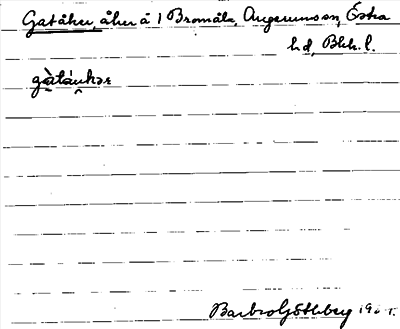 Gatåker, åker å 1 Bromåla, Augerums sn, Östra
hd, Blek. l.
gàtåukər
Barbro Götleberg 19